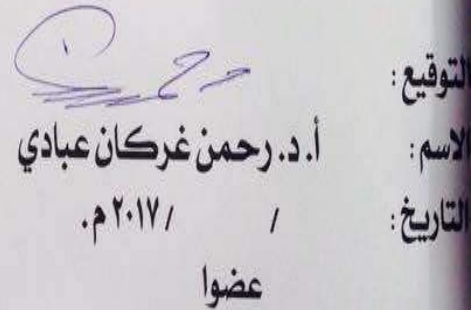 التوقيع:
الاسم: أ. د. رحمن غركان عبادي
التاريخ: / / ٢٠١٧ م.
عضوا